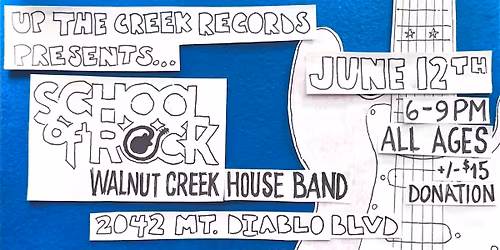 UP THE CREEK RECORDS
PRESENTS...
SCHOOL
of ROCK
WALNUT CREEK HOUSE BAND
JUNE 12TH
6-9PM
ALL AGES
+/-$15
DONATION
2042 MT. DIABLO BLVD